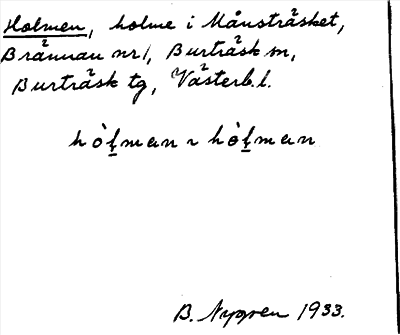 Holmen, holme i Månsträsket,
Brännan nr 1, Burträsk sn,
Burträsk tg, Västerb. l.
hòl̠man ~ hòl̠man
B. Nygren 1933.